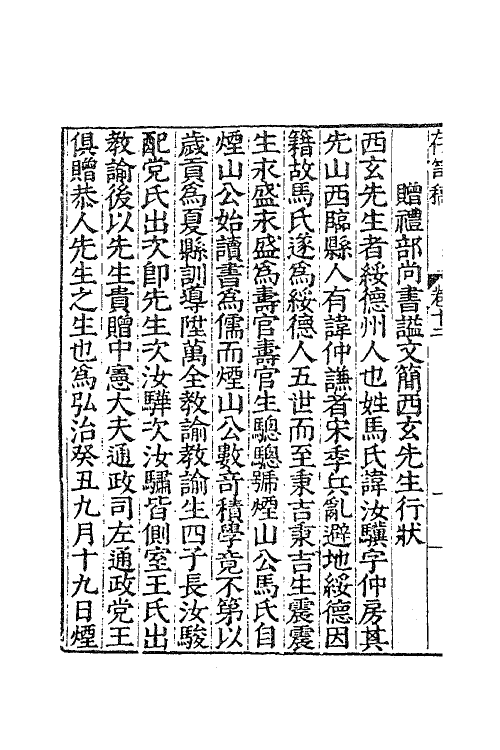 存笥稿 卷十二 一
贈禮部尚書謚文簡西玄先生行狀
西玄先生者綏德州人也姓馬氏諱汝驥字仲房其
先山西臨縣人有諱仲謙者宋季兵亂避地綏德因
籍故馬氏遂爲綏德人五世而至秉吉秉吉生震震
生永盛永盛爲壽官壽官生驄驄號煙山公馬氏自
煙山公始讀書爲儒而煙山公數竒積學竟不第以
歲貢爲夏縣訓導陞萬全教諭教諭生四子長汝駿
配党氏出次卽先生次汝驊次汝驌皆側室王氏出
教諭後以先生貴贈中憲大夫通政司左通政党王
俱贈恭人先生之生也爲弘治癸丑九月十九日煙